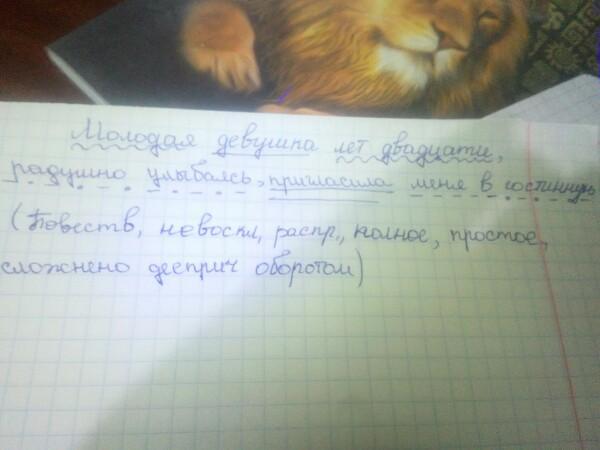 Молодая девушка лет двадцати,
радушно улыбаясь, пригласила меня в гостинную
(Повеств, невоскл, распр., полное, простое,
сложнено дееприч оборотом)